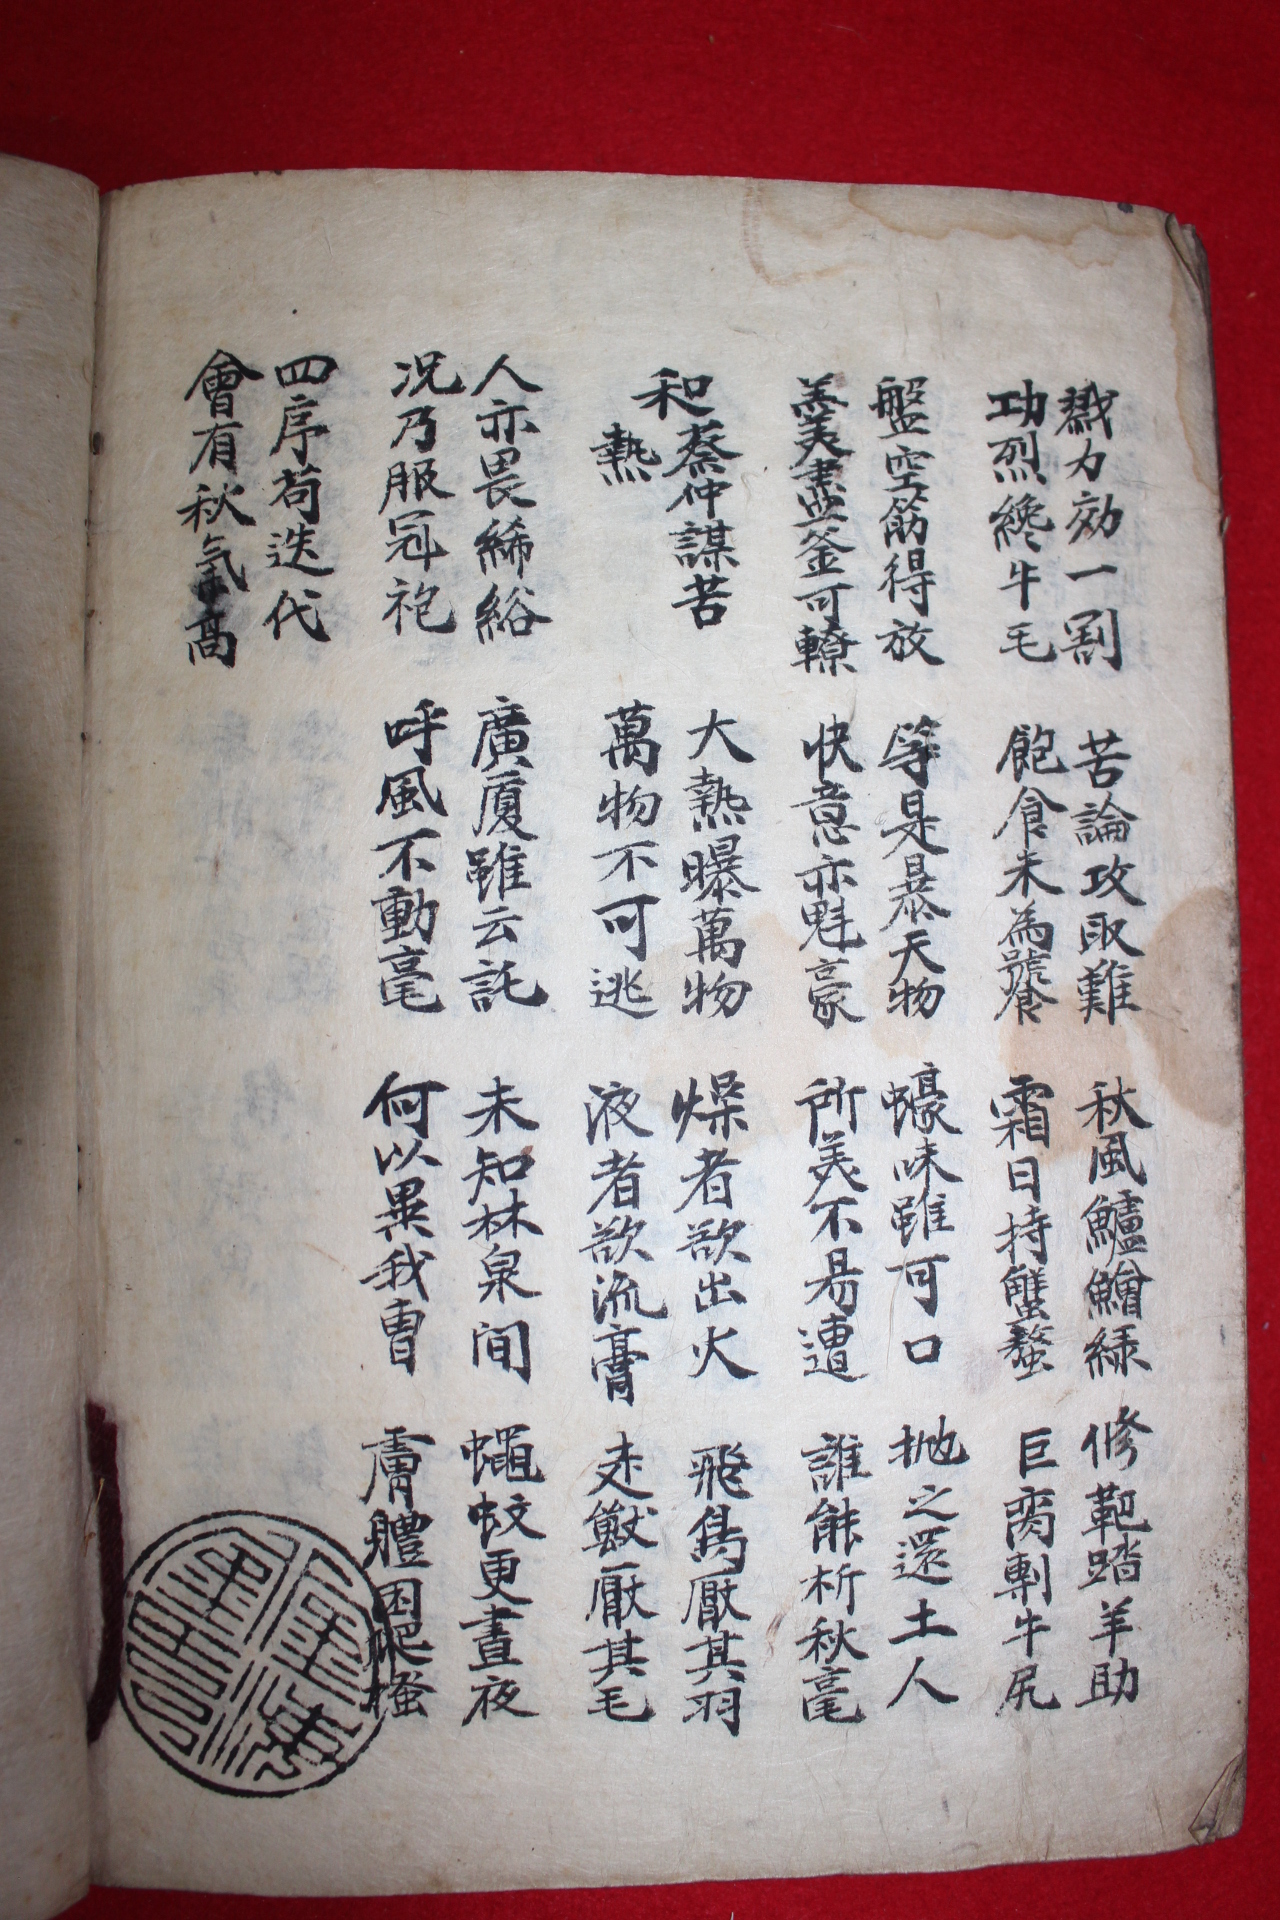 戮力効一割 苦論攻取難 秋風鱸鱠緑 修靶踏羊助
功烈纔牛毛 飽食未為饕 霜日持蟹螯 巨脔剸牛尻
盤空筯得放 等是暴天物 蠔味雖可口 抛之還土人
羹盡釜可轑 快意亦魁豪 所羙不易遭 誰能析秋毫
和蔡仲謀苦 大熱曝萬物 燥者欲出火 飛鳥厭其羽
熱 萬物不可逃 液者欲流膏 走獣厭其毛
人亦畏絺綌 廣厦雖云託 未知林泉間 蠅蚊更晝夜
况乃服冠袍 呼風不動毫 何以異我曹 膚體困爬搔
四序苟迭代
會有秋氣高